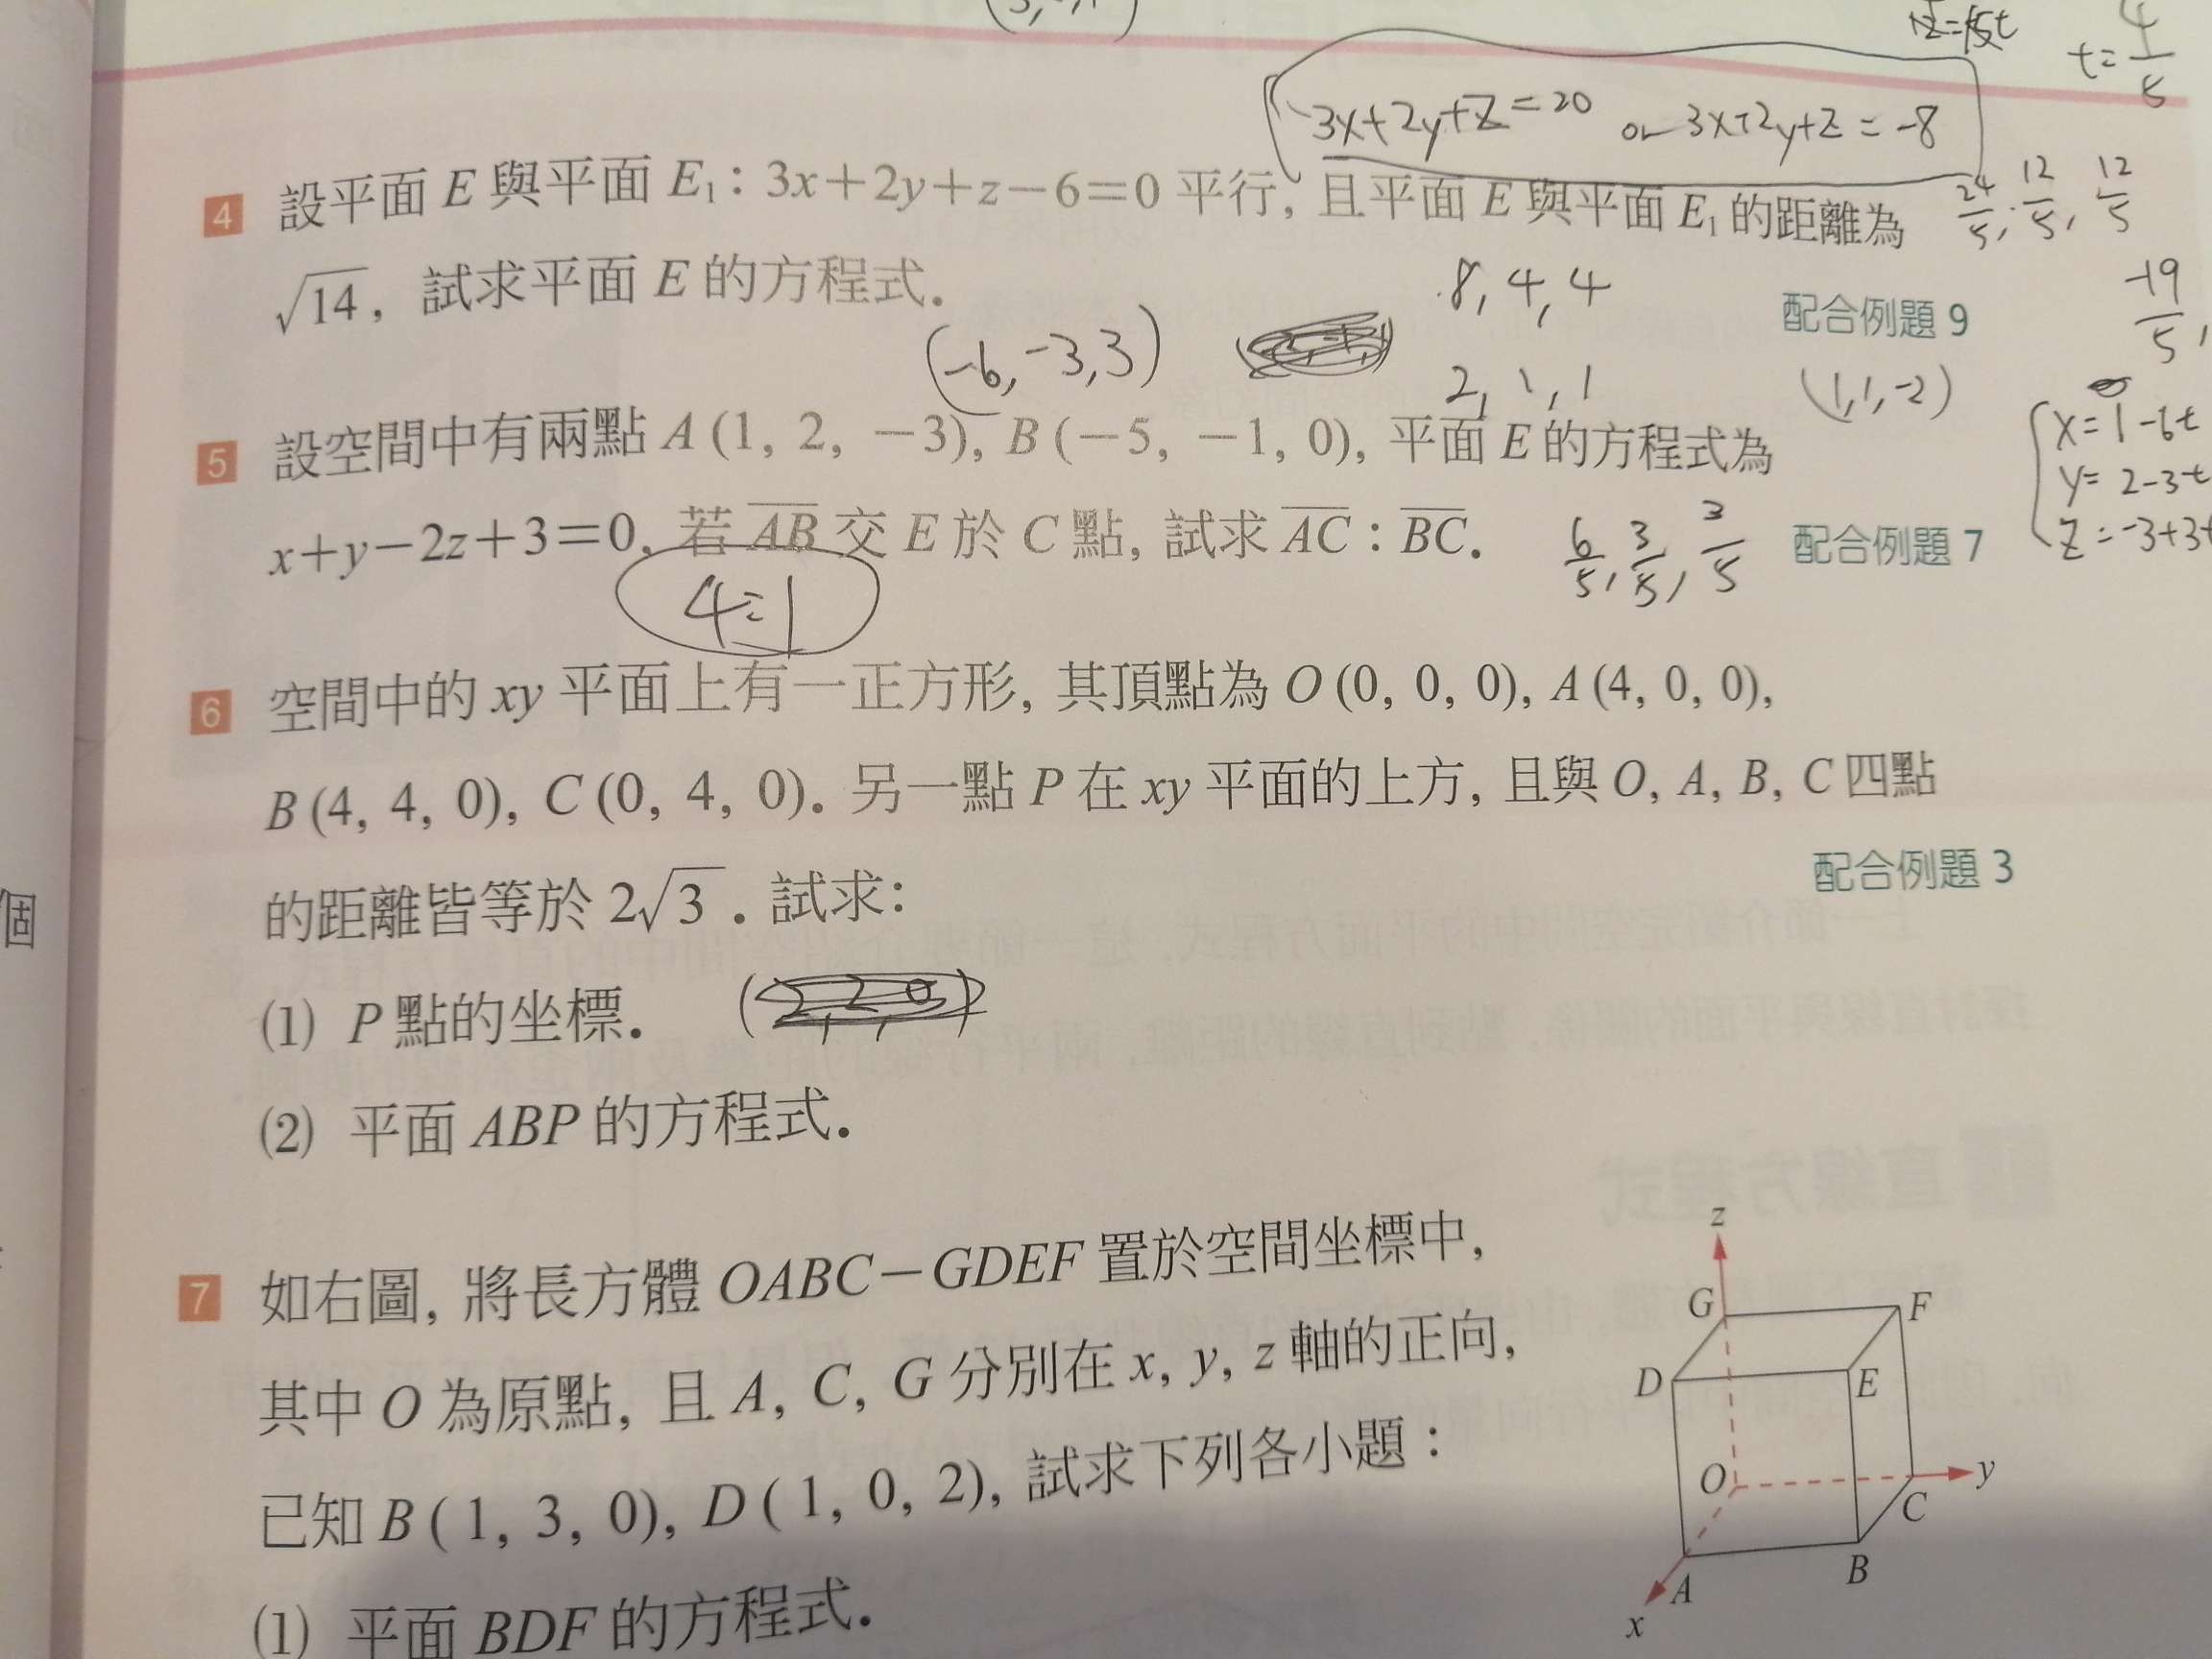 t=4/5
3x+2y+z=20 or 3x+2y+z=-8
4 設平面 E 與平面 E₁：3x+2y+z-6=0 平行，且平面 E 與平面 E₁ 的距離為
24/5, 12/5, 12/5
√14，試求平面 E 的方程式．
8, 4, 4
配合例題 9
-19/5,
(-6, -3, 3)
2, 1, 1
(1, 1, -2)
5 設空間中有兩點 A(1, 2, -3), B(-5, -1, 0), 平面 E 的方程式為
x=1-6t
y=2-3t
z=-3+3t
x+y-2z+3=0, 若 AB 交 E 於 C 點, 試求 AC：BC．
6/5, 3/5, 3/5
配合例題 7
4:1
6 空間中的 xy 平面上有一正方形, 其頂點為 O(0, 0, 0), A(4, 0, 0),
B(4, 4, 0), C(0, 4, 0)．另一點 P 在 xy 平面的上方, 且與 O, A, B, C 四點
的距離皆等於 2√3．試求：
配合例題 3
(1) P 點的坐標．
(2, 2, 0)
(2) 平面 ABP 的方程式．
7 如右圖, 將長方體 OABC-GDEF 置於空間坐標中,
其中 O 為原點, 且 A, C, G 分別在 x, y, z 軸的正向,
已知 B(1, 3, 0), D(1, 0, 2), 試求下列各小題：
(1) 平面 BDF 的方程式．
z
G
F
D
E
O
y
C
A
B
x
個